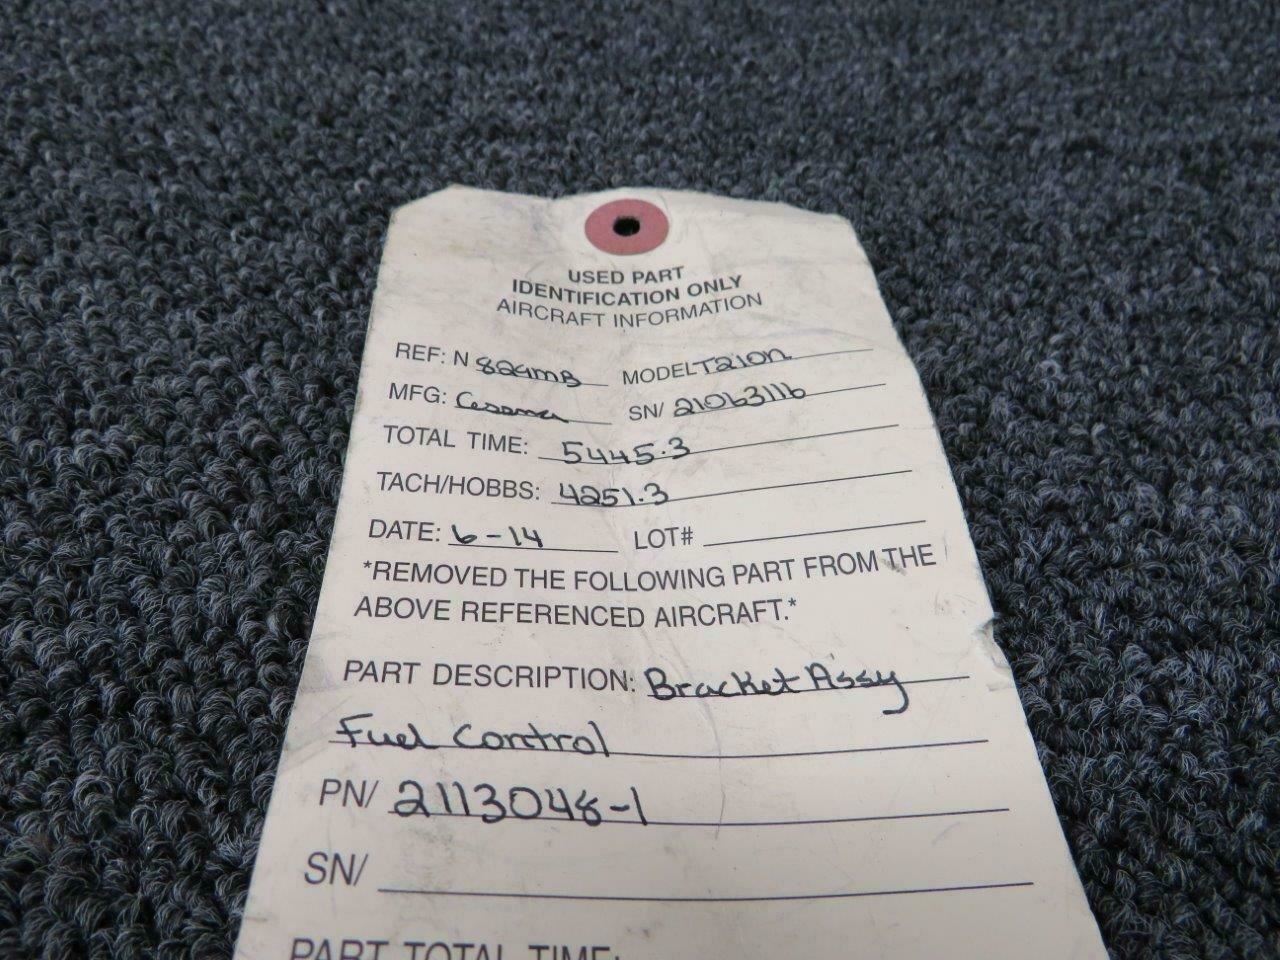 USED PART
IDENTIFICATION ONLY
AIRCRAFT INFORMATION
REF: N 824MB MODEL T210N
MFG: Cessna SN/ 21063116
TOTAL TIME: 5445.3
TACH/HOBBS: 4251.3
DATE: 6-14 LOT#
*REMOVED THE FOLLOWING PART FROM THE
ABOVE REFERENCED AIRCRAFT.*
PART DESCRIPTION: Bracket Assy
Fuel Control
PN/ 2113048-1
SN/
PART TOTAL TIME: